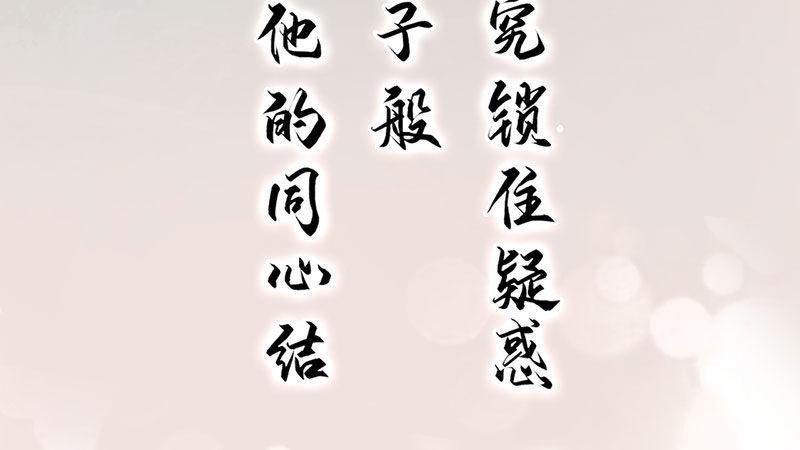 究锁住疑惑
子般
他的同心结